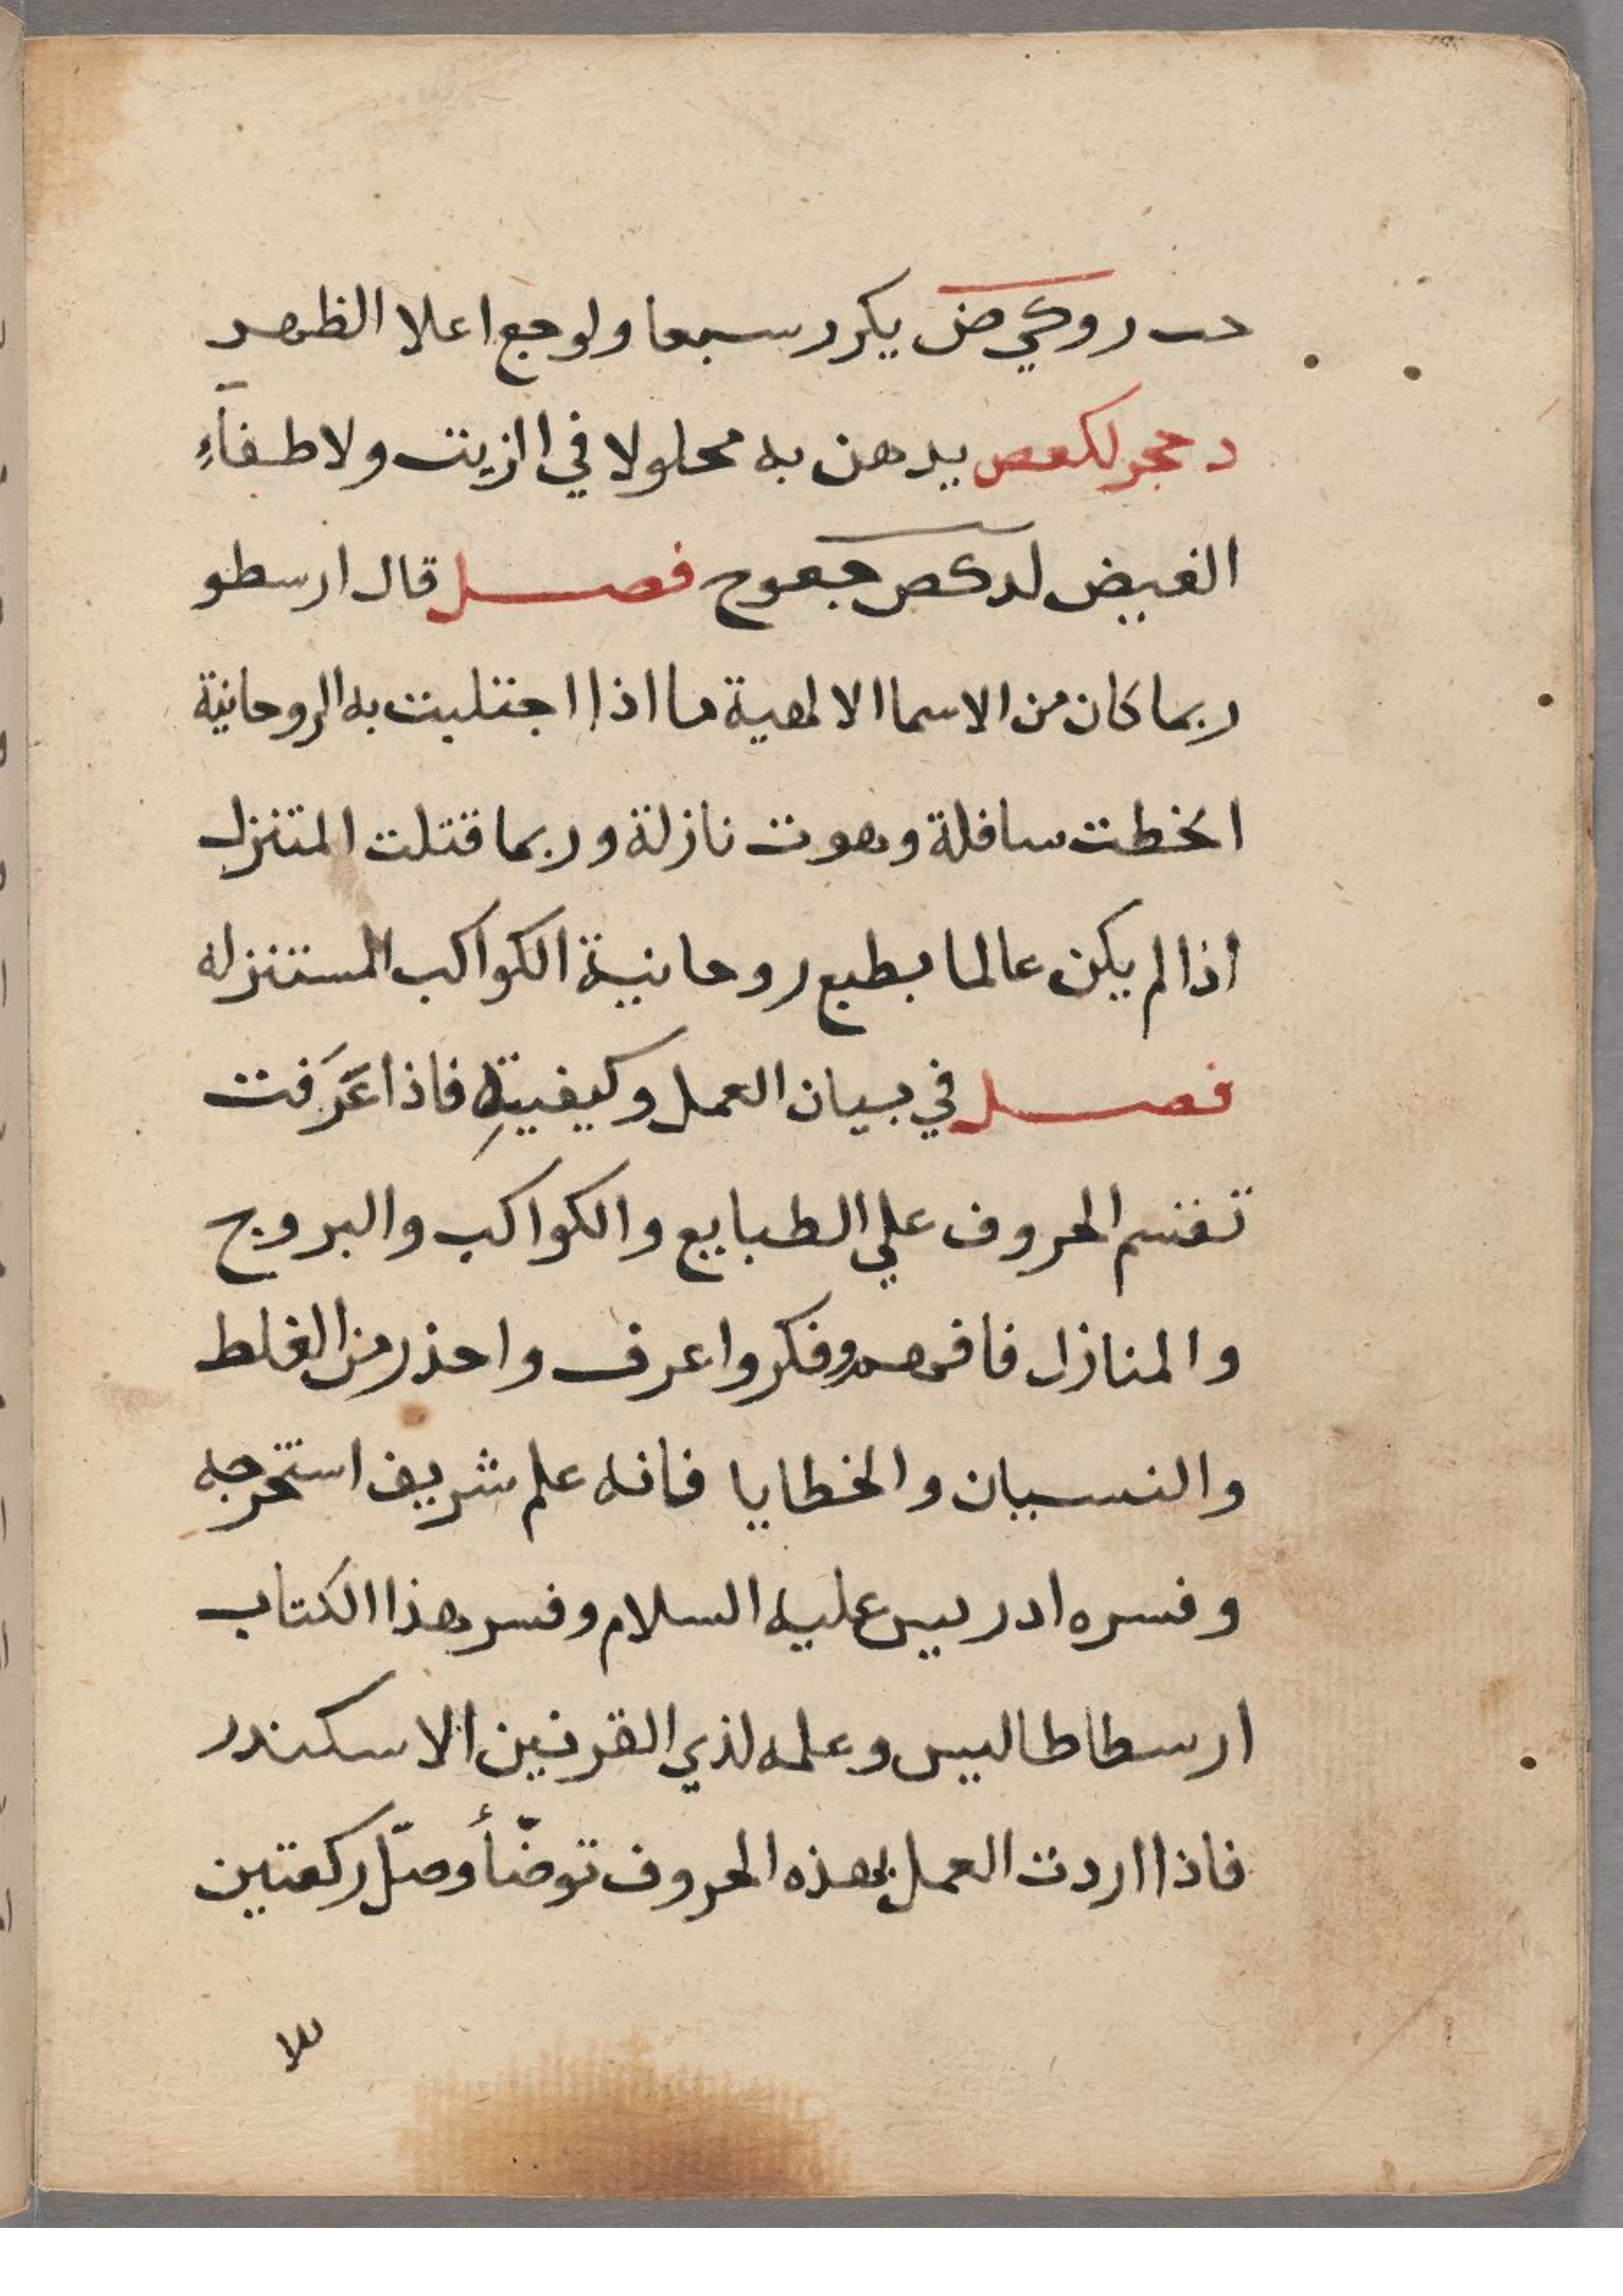 حب روكي ض يكرر سبعا ولوجع اعلا الظهر
د حجر لكعص يدهن به محلولا في ازيت ولاطفآءِ
الغيض لدكص جعوح فصل قال ارسطو
ربما كان من الاسما الالهية ما اذا اجتلبت به الروحانية
انخطت سافلة وهوت نازلة وربما قتلت المتنزل
اذا لم يكن عالما بطبع روحانية الكواكب المستنزله
فصل في بيان العمل وكيفيتهِ فاذا عَرَفت
تقسم الحروف علي الطبايع والكواكب والبروج
والمنازل فافهم وفكر واعرف واحذر من الغلط
والنسيان والخطايا فانه علم شريف استخرجه
وفسره ادريس عليه السلام وفسر هذا الكتاب
ارسطاطاليس وعلمه لذي القرنين الاسكندر
فاذا اردت العمل بهذه الحروف توضّأ وصلّ ركعتين